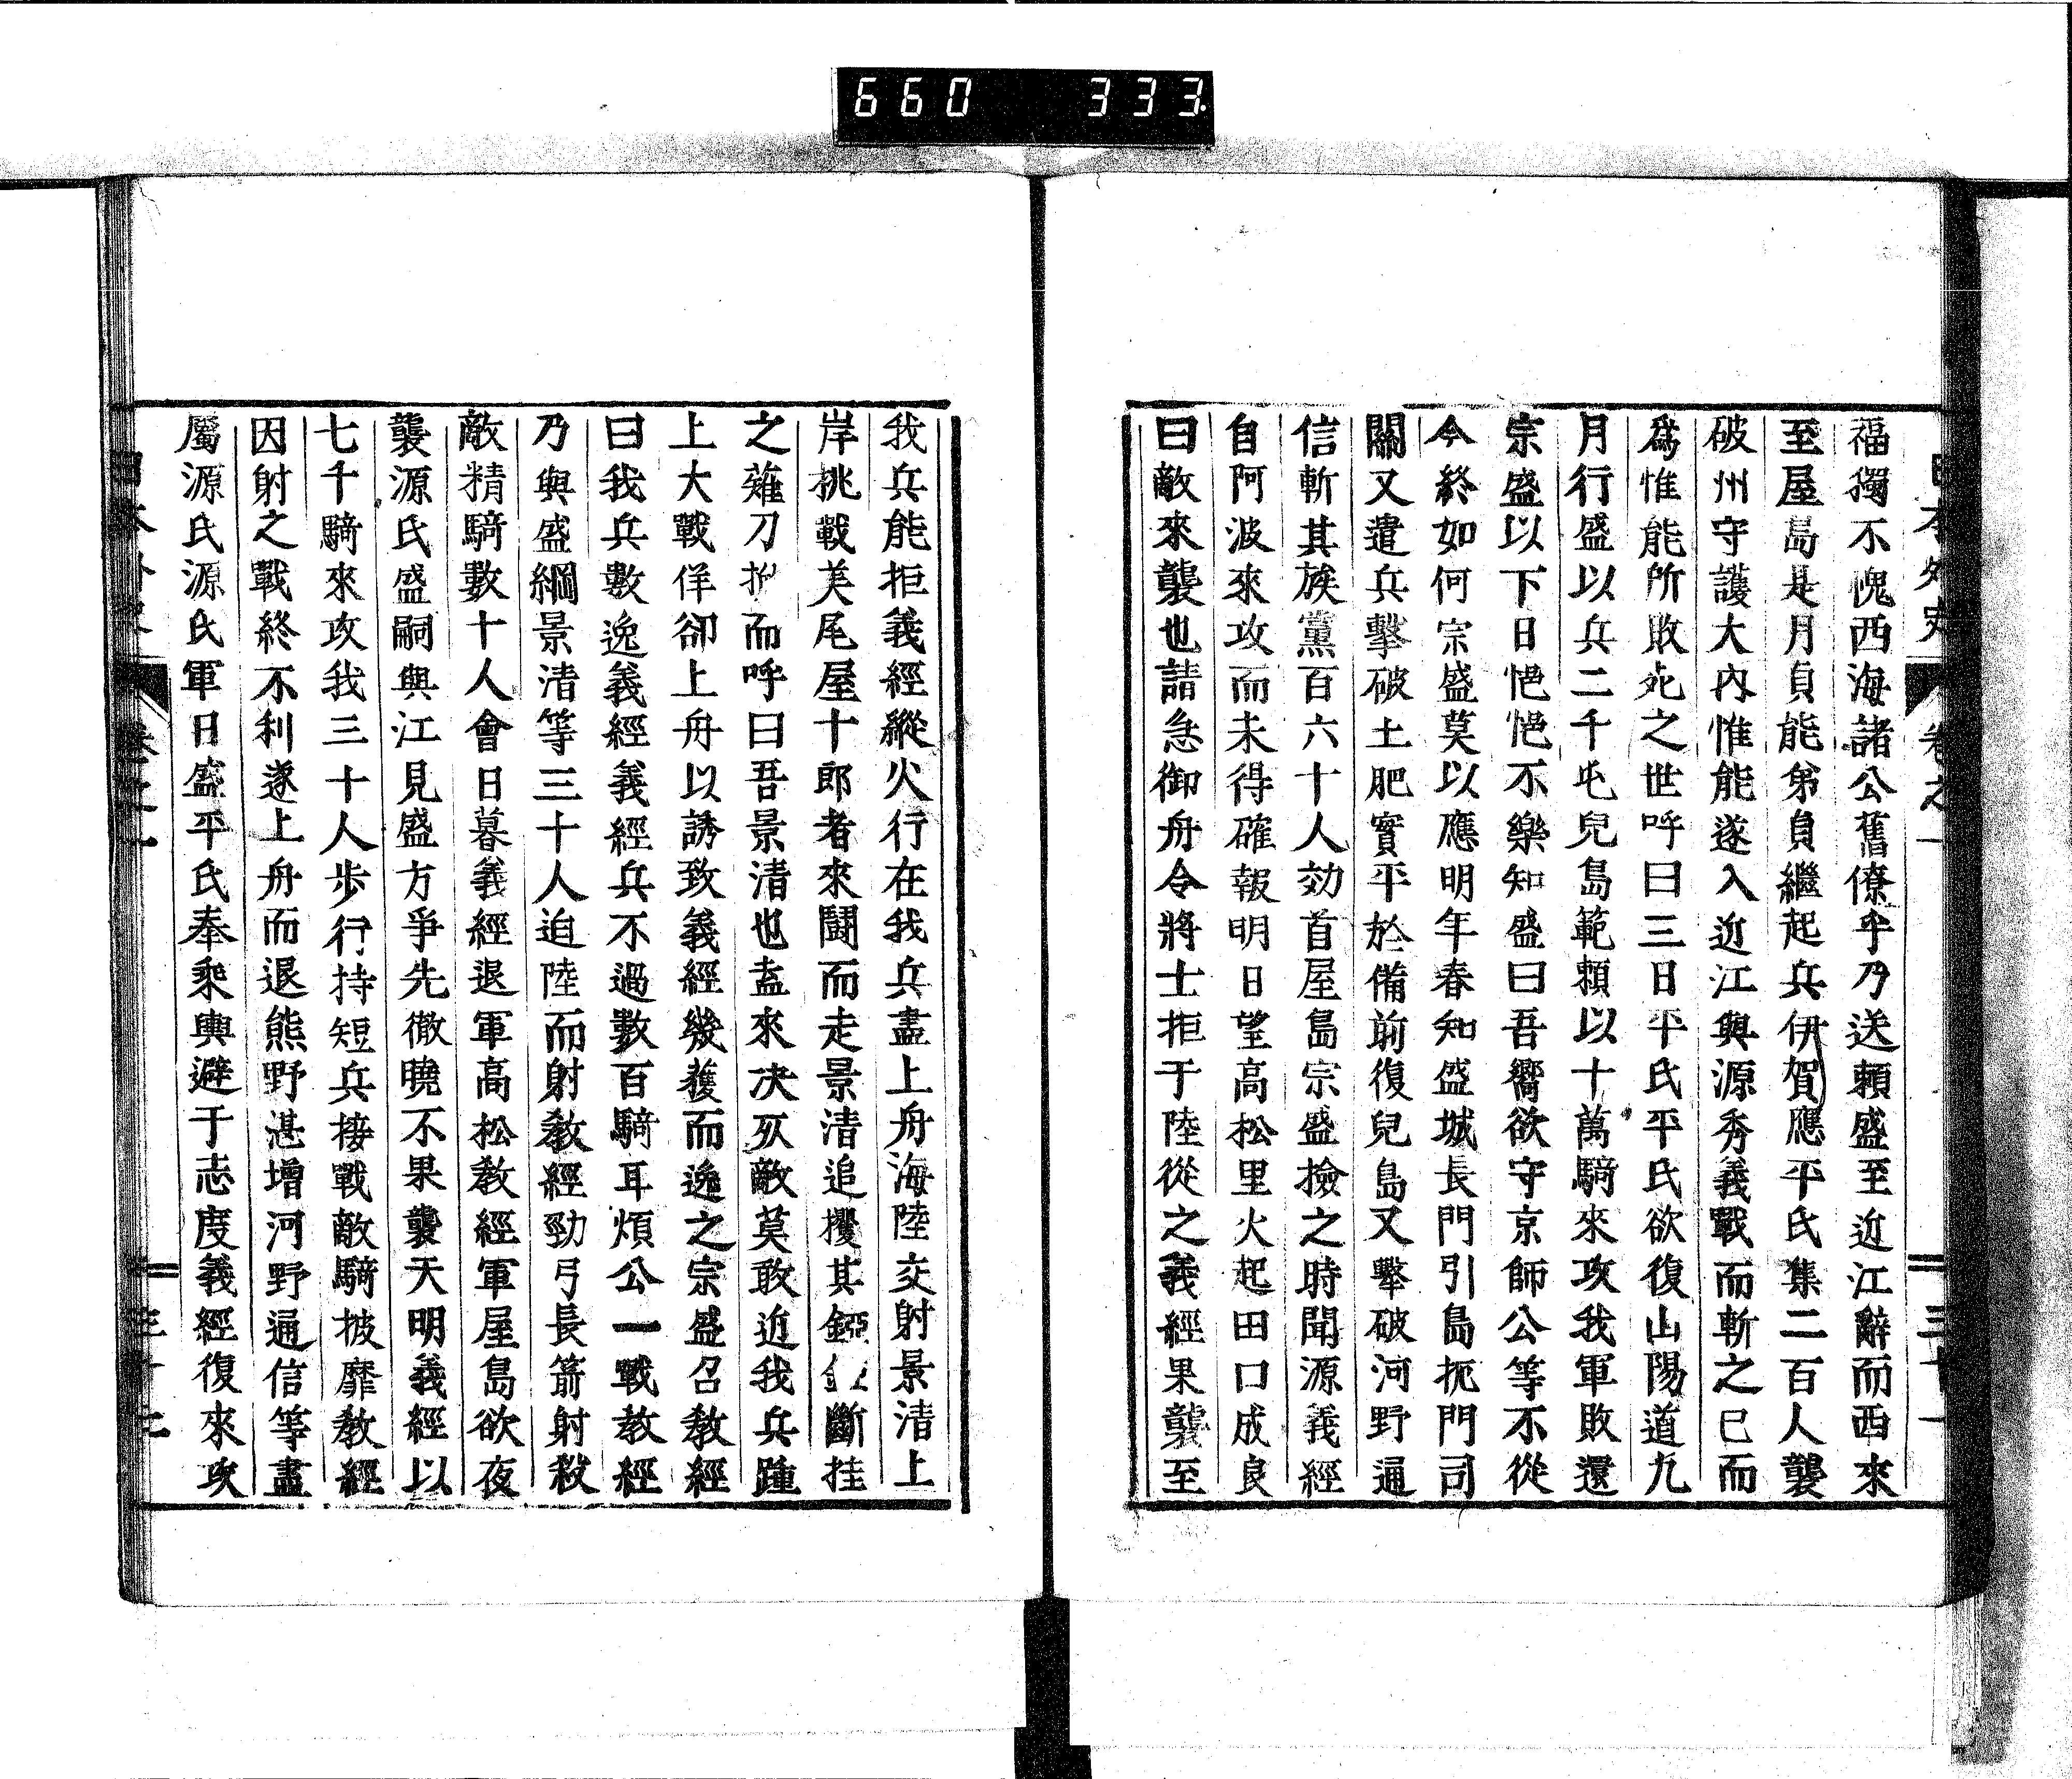 660 333
日本外史 卷之一 三十一
福獨不愧西海諸公舊僚乎乃送賴盛至近江辭而西來
至屋島是月貞能弟貞繼起兵伊賀應平氏集二百人襲
破州守護大內惟能遂入近江與源秀義戰而斬之已而
爲惟能所敗死之世呼曰三日平氏平氏欲復山陽道九
月行盛以兵二千屯兒島範賴以十萬騎來攻我軍敗還
宗盛以下日悒悒不樂知盛曰吾嚮欲守京師公等不從
今終如何宗盛莫以應明年春知盛城長門引島扼門司
關又遣兵擊破土肥實平於備前復兒島又擊破河野通
信斬其族黨百六十人効首屋島宗盛撿之時聞源義經
自阿波來攻而未得確報明日望高松里火起田口成良
曰敵來襲也請急御舟令將士拒于陸從之義經果襲至
我兵能拒義經縱火行在我兵盡上舟海陸交射景清上
岸挑戰美尾屋十郎者來鬪而走景清追攫其錏斷挂
之薙刀而呼曰吾景清也盍來决死敵莫敢近我兵踵
上大戰佯卻上舟以誘致義經幾獲而逸之宗盛召敎經
曰我兵數逸義經義經兵不過數百騎耳煩公一戰敎經
乃與盛綱景清等三十人迫陸而射敎經勁弓長箭射殺
敵精騎數十人會日暮義經退軍高松敎經軍屋島欲夜
襲源氏盛嗣與江見盛方爭先徹曉不果襲天明義經以
七千騎來攻我三十人步行持短兵接戰敵騎披靡敎經
因射之戰終不利遂上舟而退熊野湛增河野通信等盡
屬源氏源氏軍日盛平氏奉乘輿避于志度義經復來攻